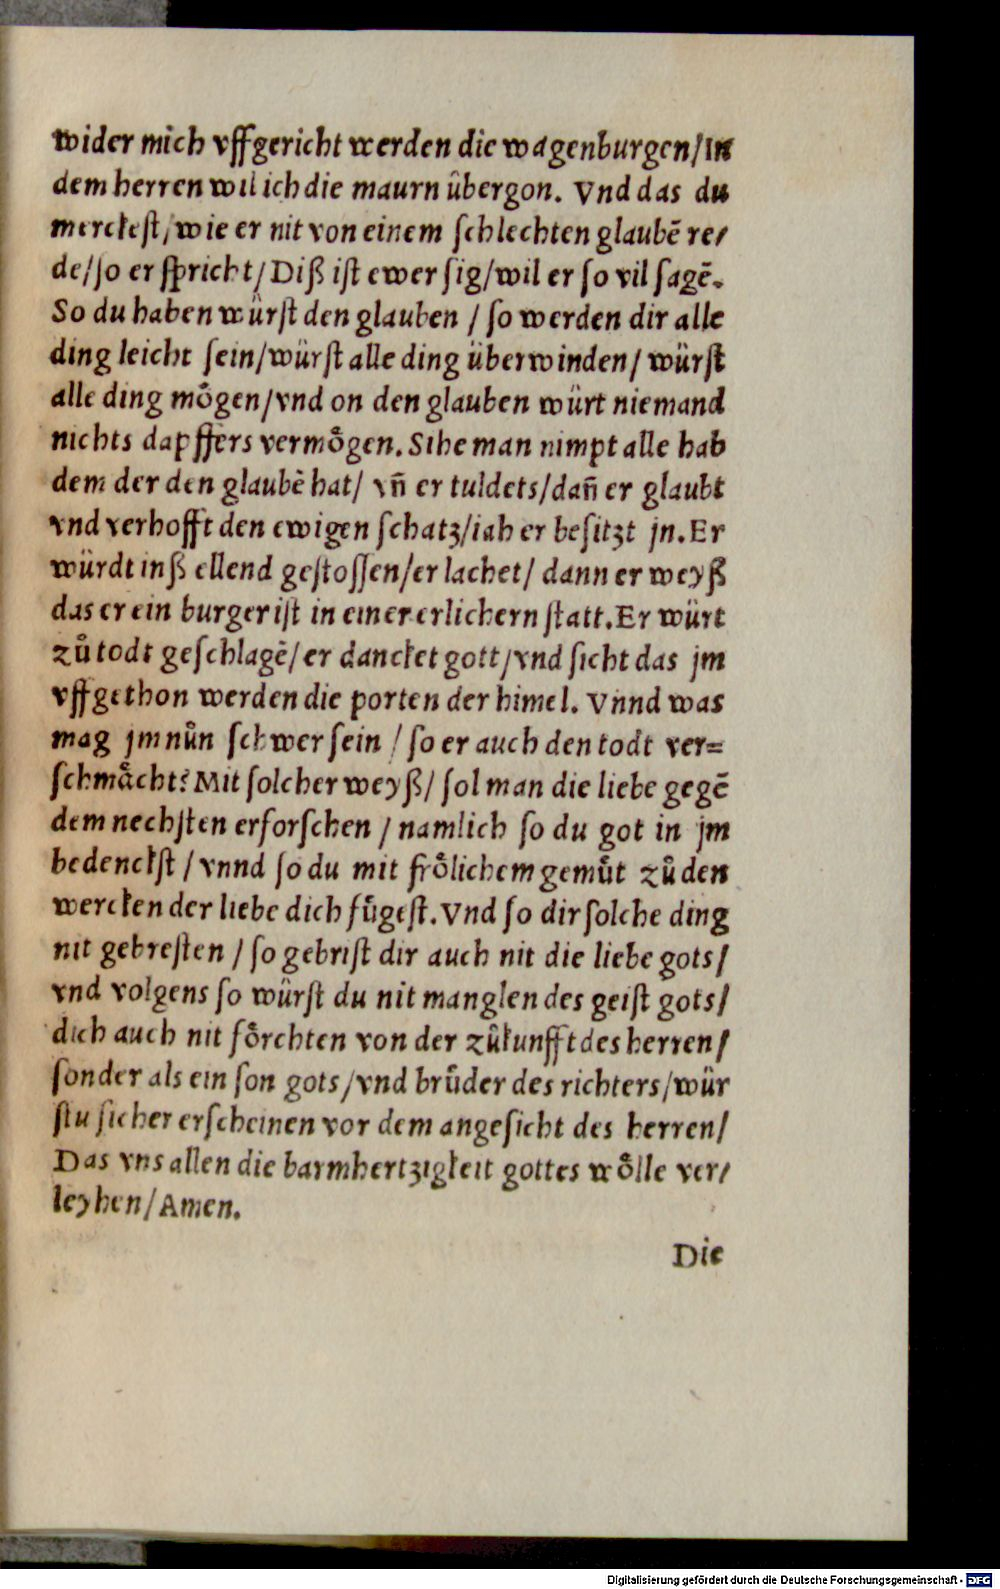 wider mich vffgericht werden die wagenburgen/In
dem herren wil ich die maurn übergon. Vnd das du
merckeſt/wie er nit von einem ſchlechten glaubē re/
de/ſo er ſpricht/Diß iſt ewer ſig/wil er ſo vil ſagē.
So du haben würſt den glauben / ſo werden dir alle
ding leicht ſein/würſt alle ding überwinden/ würſt
alle ding mo̊gen/vnd on den glauben würt niemand
nichts dapffers vermo̊gen. Sihe man nimpt alle hab
dem der den glaubē hat/ vñ er tuldets/dañ er glaubt
vnd verhofft den ewigen ſchatz/iah er beſitzt jn. Er
würdt inß ellend geſtoſſen/er lachet/ dann er weyß
das er ein burger iſt in einer erlichern ſtatt. Er würt
zů todt geſchlagē/er dancket gott/vnd ſicht das jm
vffgethon werden die porten der himel. Vnnd was
mag jm nůn ſchwer ſein / ſo er auch den todt ver=
ſchmåcht? Mit ſolcher weyß/ ſol man die liebe gegē
dem nechſten erforſchen / namlich ſo du got in jm
bedenckſt / vnnd ſo du mit fro̊lichem gemůt zů den
wercken der liebe dich fůgeſt. Vnd ſo dir ſolche ding
nit gebreſten / ſo gebriſt dir auch nit die liebe gots/
vnd volgens ſo würſt du nit manglen des geiſt gots/
dich auch nit fo̊rchten von der zůkunfft des herren/
ſonder als ein ſon gots/vnd brůder des richters/wür
ſtu ſicher erſcheinen vor dem angeſicht des herren/
Das vns allen die barmhertzigkeit gottes wo̊lle ver/
leyhen/Amen.
Die
Digitalisierung gefördert durch die Deutsche Forschungsgemeinschaft - DFG